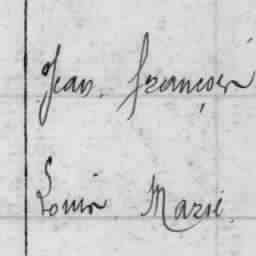 Jean François
Louis Marie